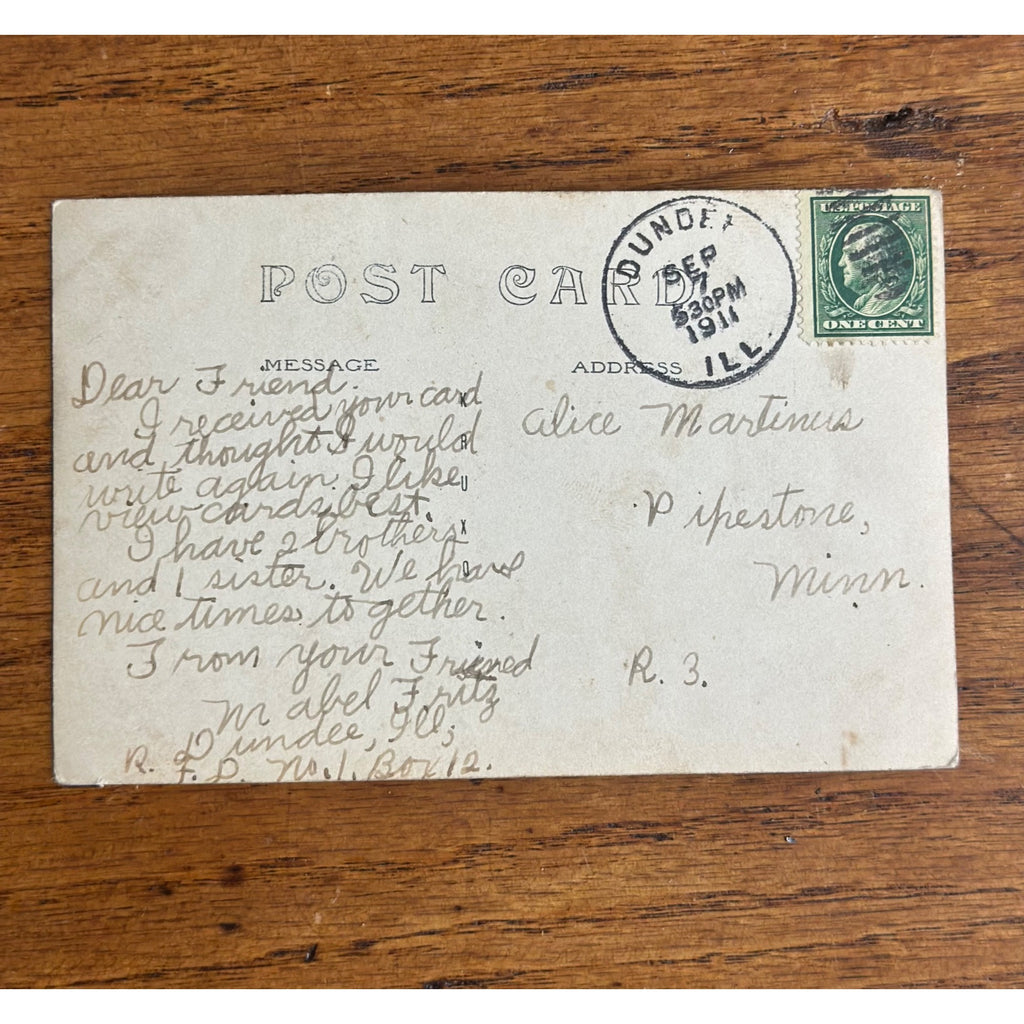 POST CARD
DUNDEE
SEP
7
530PM
1911
ILL.
U.S. POSTAGE
ONE CENT
MESSAGE
Dear Friend.
I received your card
and thought I would
write again. I like
view cards best.
I have 2 brothers
and 1 sister. We have
nice times together.
From your Friend
Mabel Fritz
Dundee, Ill;
R. F. D. No. 1. Box 12.
KRUXO
ADDRESS
Alice Martinus
Pipestone,
Minn.
R. 3.